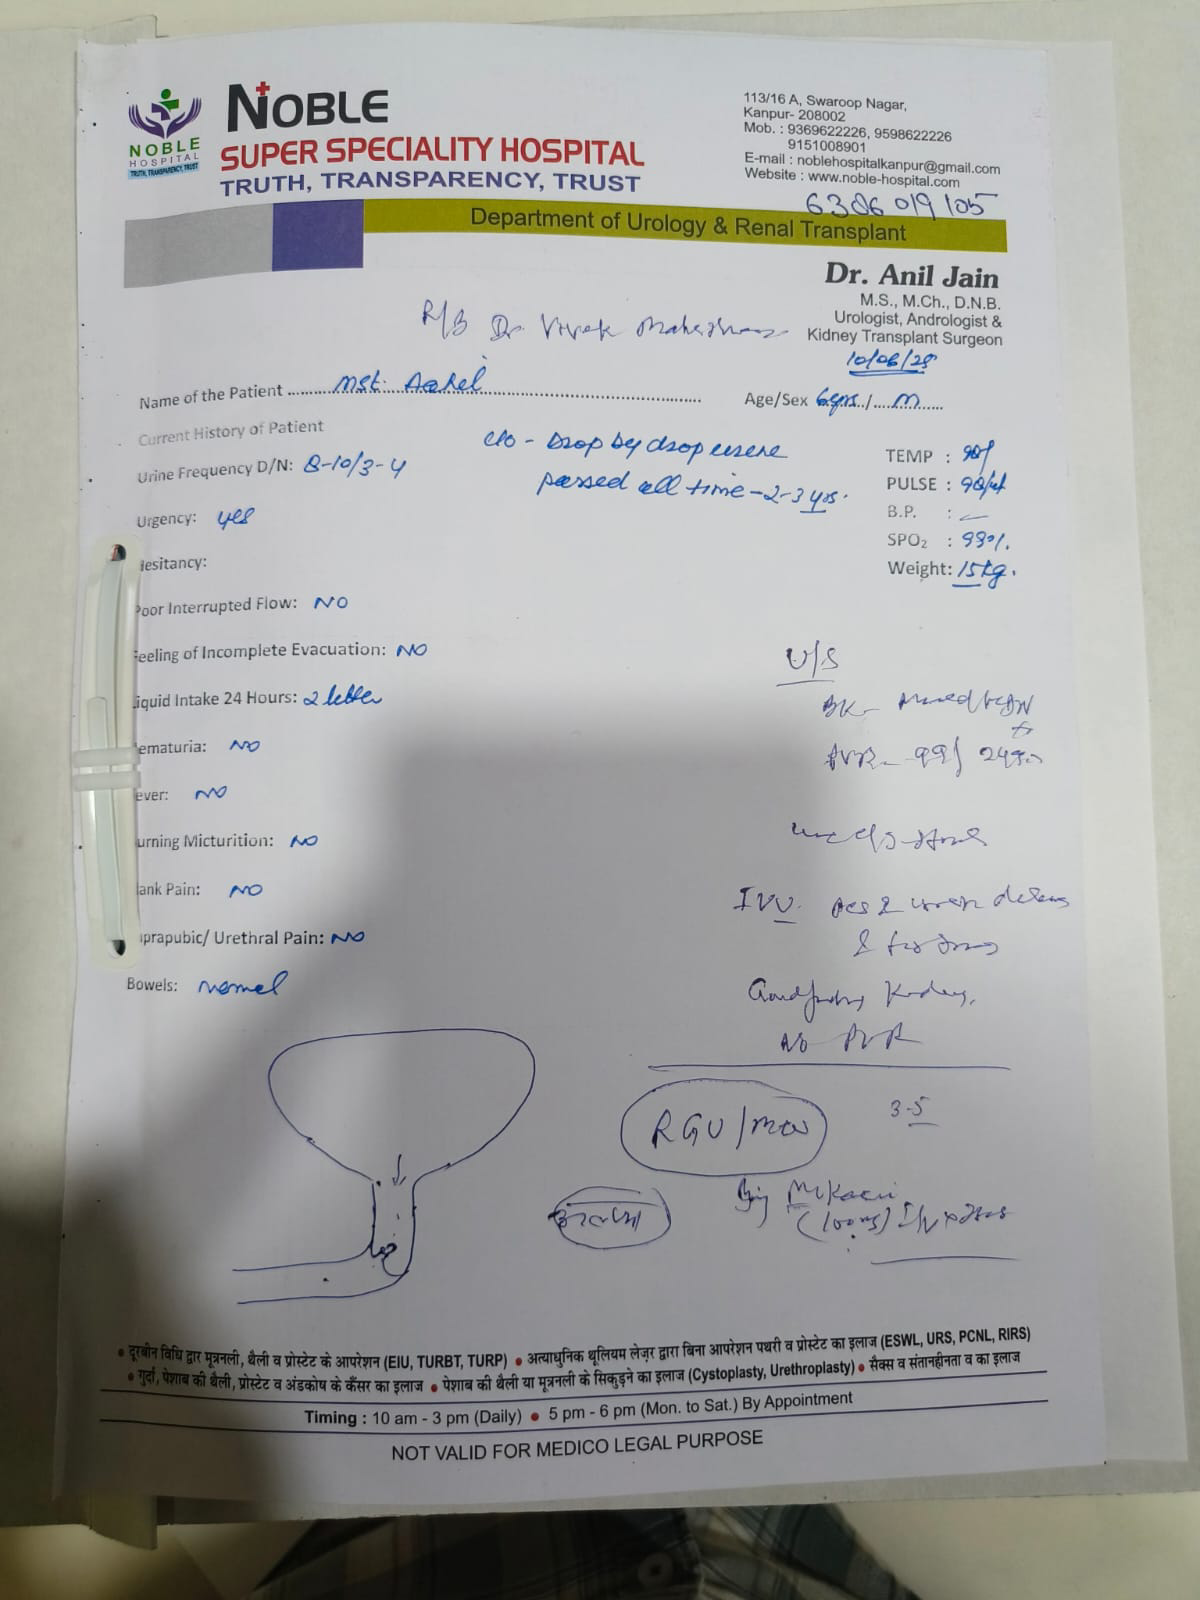 NOBLE
HOSPITAL
TRUTH, TRANSPARENCY, TRUST
NOBLE
SUPER SPECIALITY HOSPITAL
TRUTH, TRANSPARENCY, TRUST
113/16 A, Swaroop Nagar,
Kanpur- 208002
Mob. : 9369622226, 9598622226
9151008901
E-mail : noblehospitalkanpur@gmail.com
Website : www.noble-hospital.com
6306019105
Department of Urology & Renal Transplant
Dr. Anil Jain
M.S., M.Ch., D.N.B.
Urologist, Andrologist &
Kidney Transplant Surgeon
R/B Dr Vivek
10/06/25
Name of the Patient Mst.
Age/Sex 6yrs / M
Current History of Patient
c/o - Drop by drop urine
passed all time - 2-3 yrs.
Urine Frequency D/N: 8-10/3-4
Urgency: yes
Hesitancy:
Poor Interrupted Flow: NO
Feeling of Incomplete Evacuation: NO
Liquid Intake 24 Hours: 2
ematuria: NO
ever: NO
urning Micturition: NO
lank Pain: NO
uprapubic/ Urethral Pain: NO
Bowels: normal
TEMP :
PULSE :
B.P. : —
SPO₂ : 99%.
Weight: 15kg.
U/S
BK-
PVR- 99/
IVU.
Kidney,
No PVR
RGU/MCU
3-5
Inj Mikacin
(100mg) I/V x
• दूरबीन विधि द्वार मूत्रनली, थैली व प्रोस्टेट के आपरेशन (EIU, TURBT, TURP) • अत्याधुनिक थूलियम लेज़र द्वारा बिना आपरेशन पथरी व प्रोस्टेट का इलाज (ESWL, URS, PCNL, RIRS)
• गुर्दा, पेशाब की थैली, प्रोस्टेट व अंडकोष के कैंसर का इलाज • पेशाब की थैली या मूत्रनली के सिकुड़ने का इलाज (Cystoplasty, Urethroplasty) • सैक्स व संतानहीनता व का इलाज
Timing : 10 am - 3 pm (Daily) • 5 pm - 6 pm (Mon. to Sat.) By Appointment
NOT VALID FOR MEDICO LEGAL PURPOSE